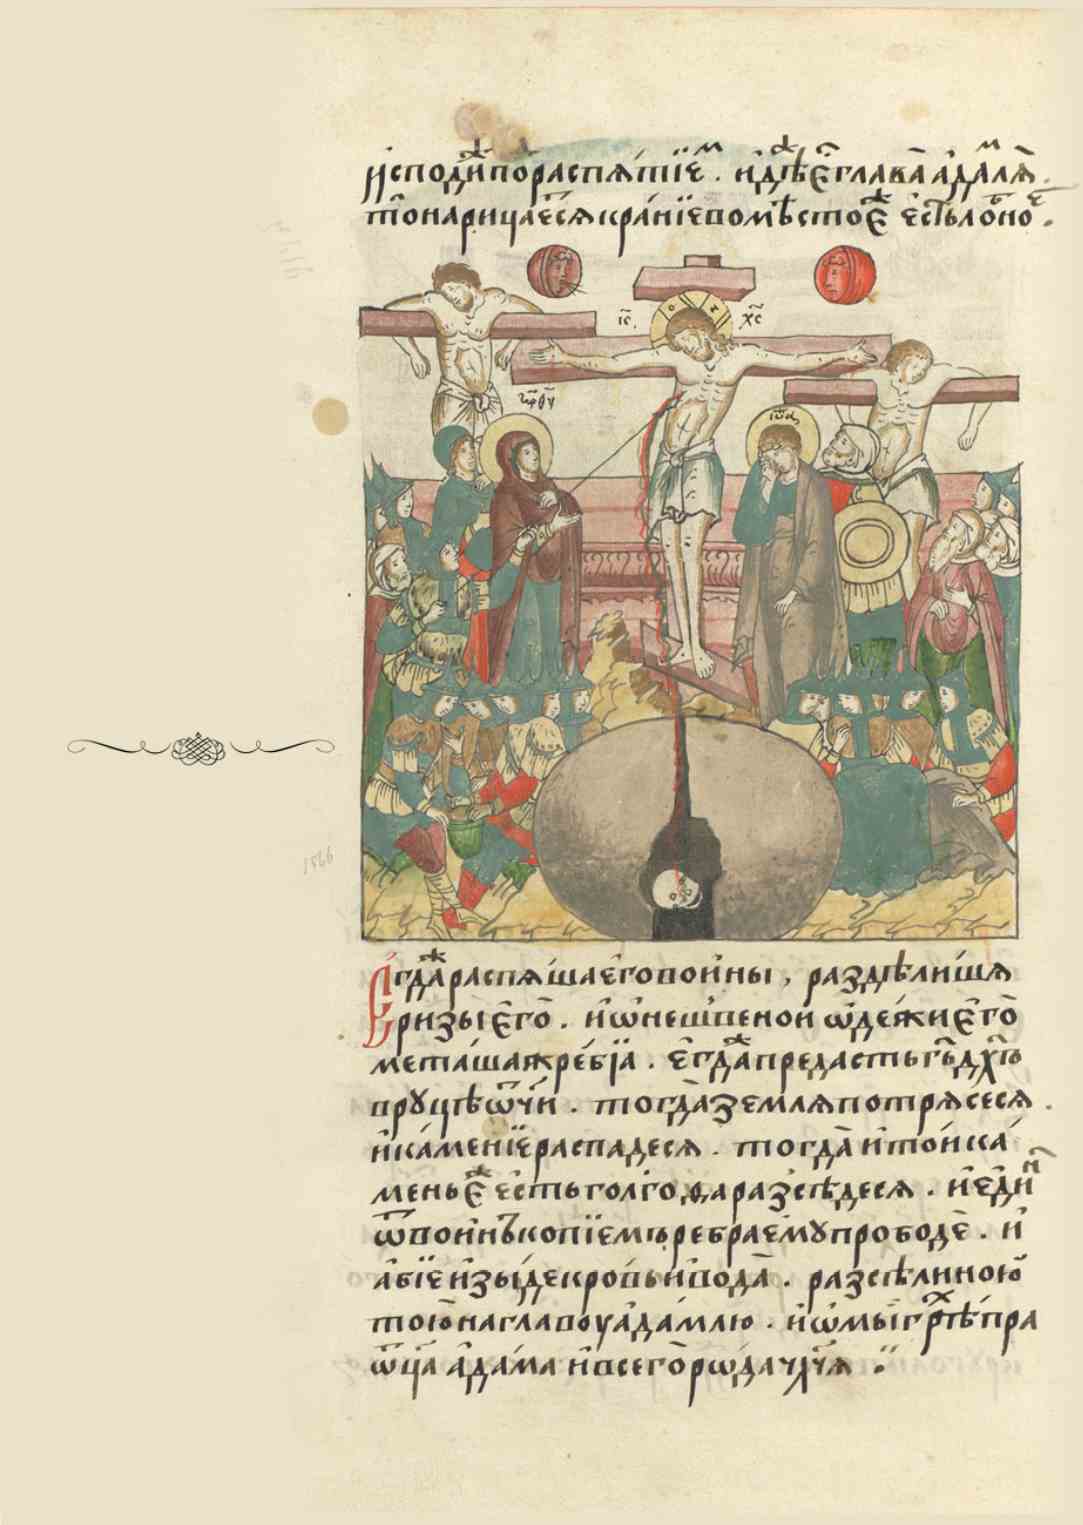 исподи по распѧ́тїеᲂмъ . и҆дѣже є҆ глава̀ а҆да́млѧ .
то̀ нарица́етсѧ кра́нїево мѣсто є҆же є҆сть ло́бно є .
і҃с. х҃с
мр҃ ѳу
іѡа҃
Є҆гда̀ распѧ́ша є҆го̀ во́ини , раздѣли́шѧ
ризы є҆го̀ . и҆ ѡ҆ нешве́ной ѡ҆де́жи є҆го̀
мета́ша жре́бїа . є҆гда́же предастъ гь дх҃ъ
в руцѣ ѿчи . тогда̀ землѧ потрѧсесѧ .
и҆ ка́менїе распадесѧ . тогда̀ и҆ то́й ка́
мень є҆же є҆сть голго́ѳа разсѣдесѧ . и҆ є҆ди́нъ
ѿ во́инъ копїемъ ребра є҆мꙋ прободѐ . и҆
а҆бїе и҆зы́де кровь и҆ вода̀ . разсѣлиною
тою на главоу а҆да́млю . и҆ ѡ҆мы́ грѣхѝ пра
ѿца а҆да́ма и҆ всего̀ рода чл҃чѧ .
1866